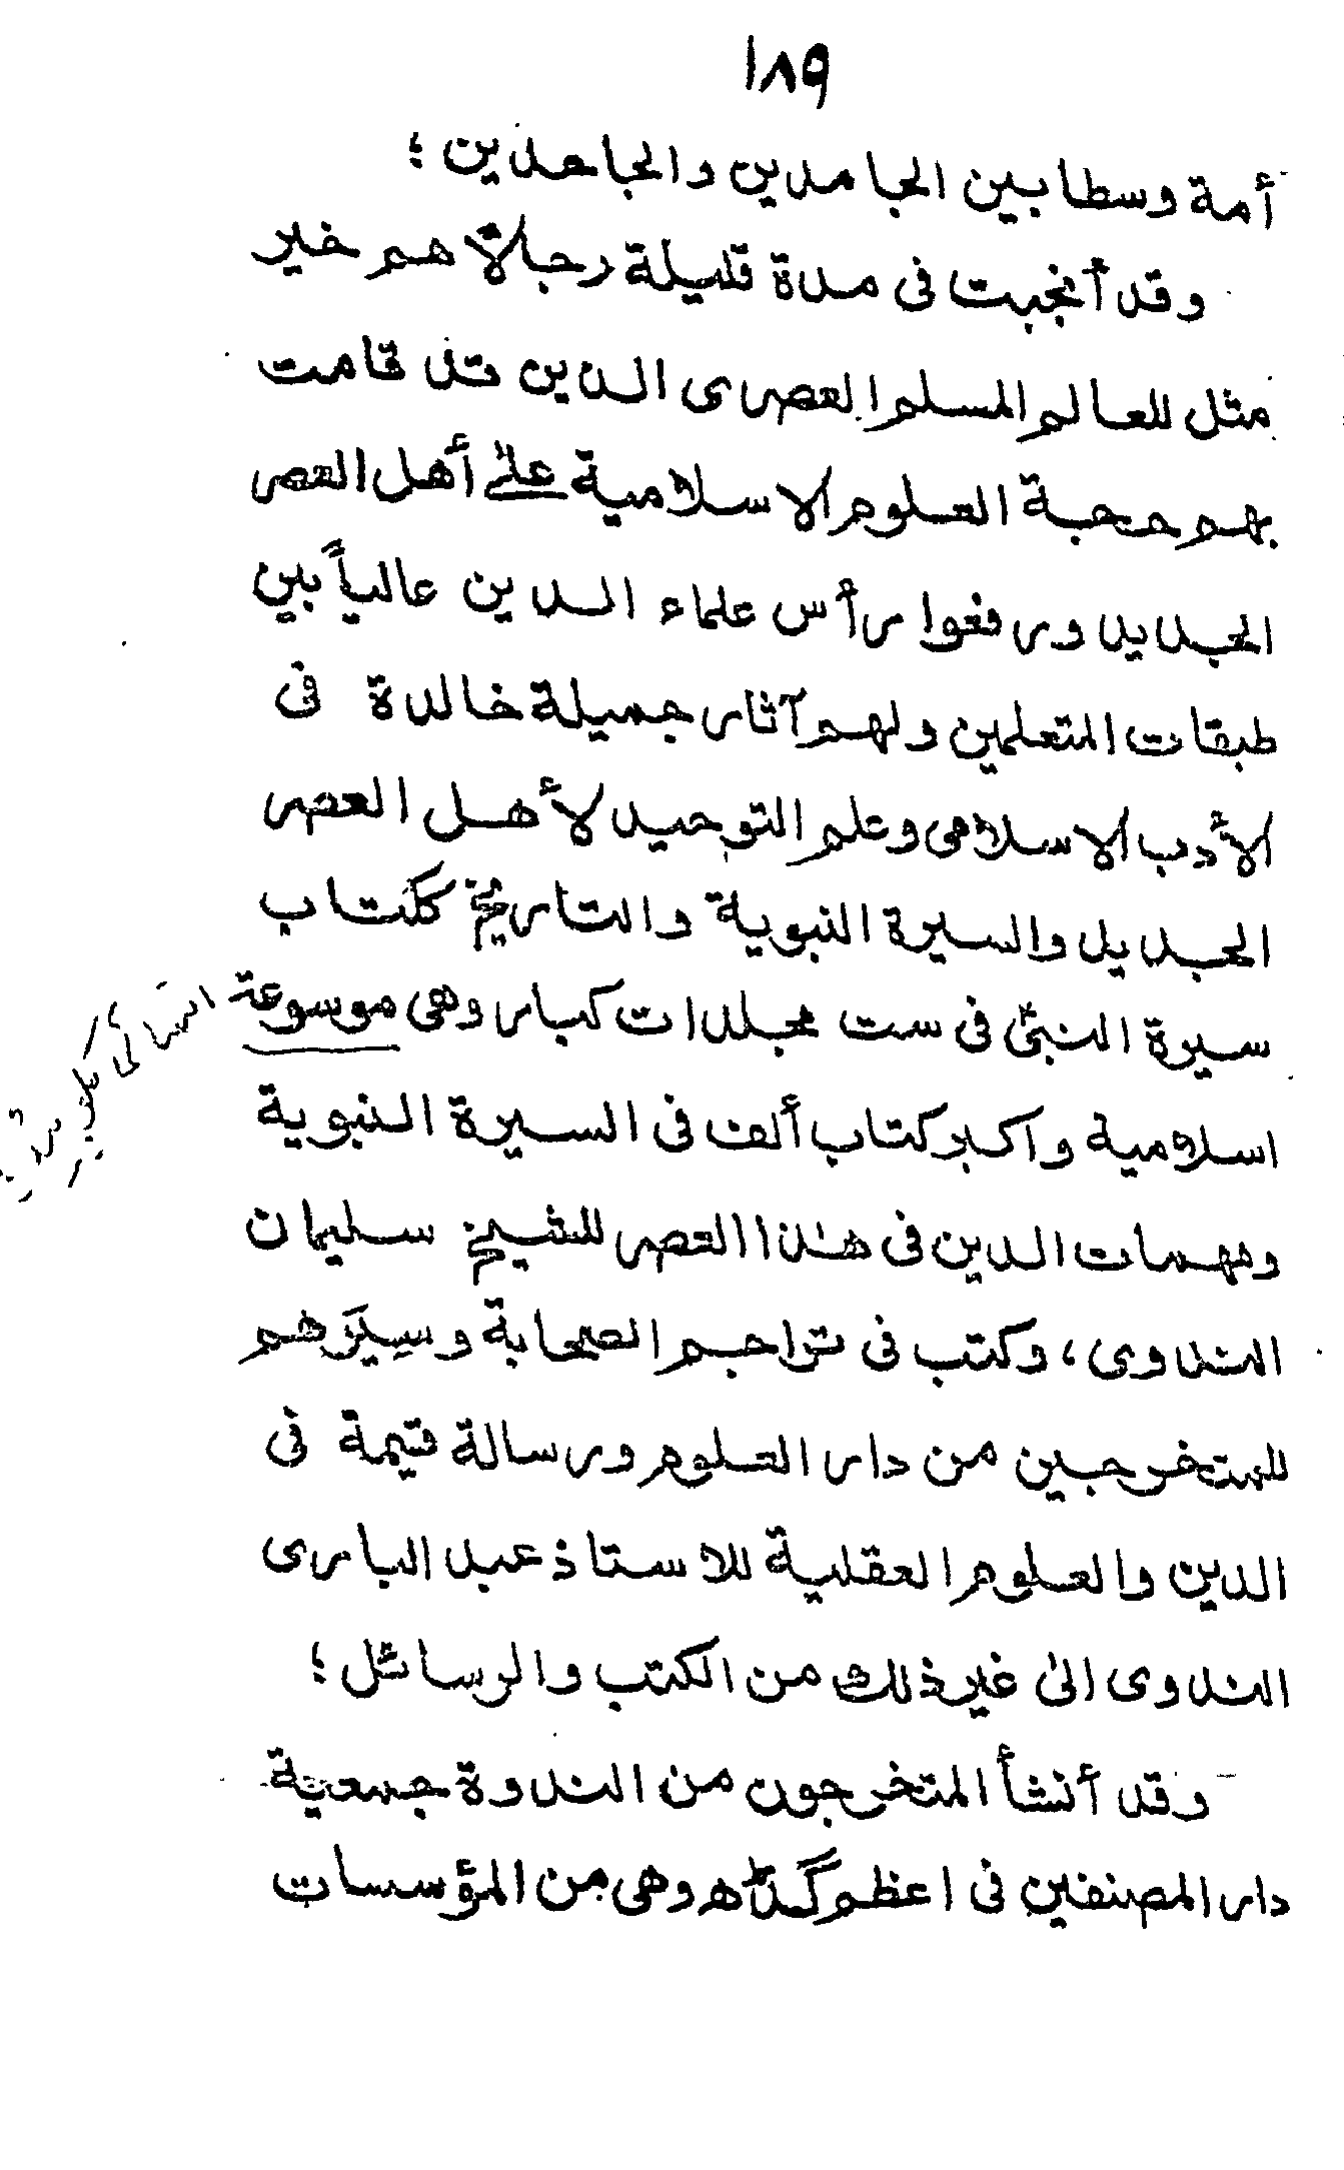 ١٨٩
أمة وسطا بين الجامدين والجاحدين ؛
وقد أنجبت فى مدة قليلة رجالاً هم خير
مثل للعالم المسلم العصرى الدين قد قامت
بهم حجة العلوم الاسلامية علىٰ أهل العصر
الجديد ورفعوا رأس علماء الدين عالياً بين
طبقات المتعلمين ولهم آثار جميلة خالدة فى
الأدب الاسلامى وعلم التوحيد لأهل العصر
الجديد والسيرة النبوية والتاريخ ككتاب
سيرة النبىّ فى ست مجلدات كبار وهى موسوعة
اسلامية واكبر كتاب ألف فى السيرة النبوية
ومهمات الدين فى هذا العصر للشيخ سليمان
الندوى، وكتب فى تراجم الصحابة وسِيَرهم
للمتخرجين من دار العلوم ورسالة قيمة فى
الدين والعلوم العقلية للاستاذ عبد البارى
الندوى الىٰ غير ذلك من الكتب والرسائل ؛
وقد أنشأ المتخرجون من الندوة جمعية
دار المصنفين فى اعظم گڈھ وهى من المؤسسات